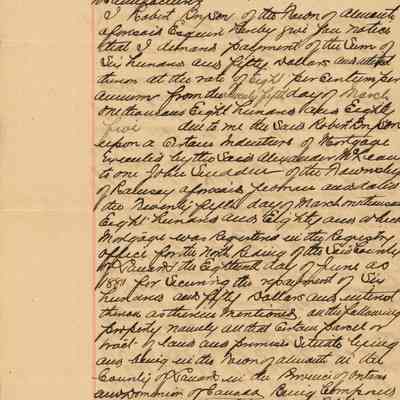 Manufacturer
I Robert Dyson of the Town of Almonte
aforesaid Esquire hereby give you notice
that I demand payment of the Sum of
Six hundred and fifty Dollars and interest
thereon at the rate of Eight per centum per
annum from the twenty fifth day of March
One thousand Eight hundred and Eighty
five due to me the said Robert Dyson
upon a Certain Indenture of Mortgage
Executed by the said Alexander McLean
to one John of the Township
of Ramsay aforesaid yeoman and dated
the Twenty fifth day of March one thousand
Eight hundred and Eighty and which
Mortgage was Registered in the Registry
Office for the North Riding of the said County
of Lanark the Eighteenth day of June AD
1881 for securing the repayment of Six
hundred and fifty Dollars and interest
thereon as therein mentioned on the following
property namely all that certain parcel or
tract of land and premises situate lying
and being in the Town of Almonte in the
County of Lanark in the Province of Ontario
and Dominion of Canada Being Composed